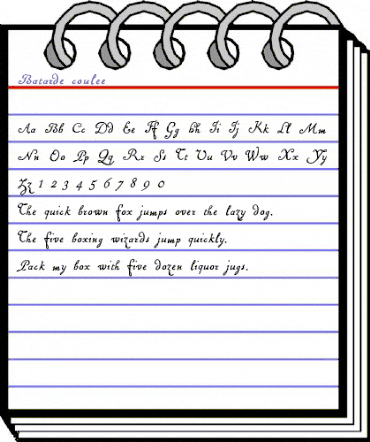 Batarde coulee
Aa Bb Cc Dd Ee Ff Gg Hh Ii Jj Kk Ll Mm
Nn Oo Pp Qq Rr Ss Tt Uu Vv Ww Xx Yy
Zz 1 2 3 4 5 6 7 8 9 0
The quick brown fox jumps over the lazy dog.
The five boxing wizards jump quickly.
Pack my box with five dozen liquor jugs.